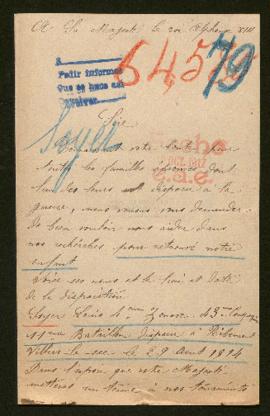 A Sa Majesté le roi Alphonse XIII
64579
Pedir informes
que se hace del
Sire
Connaissant votre bonté pour
toutes les familles éprouvées dont
un des leurs a disparu à la
guerre, nous venons vous demander
de bien vouloir nous aider dans
nos recherches pour retrouver notre
enfant
Voici ses noms et le lieu et date
de la disparition
Louis 4me Zouaves 43me
11me Bataillon disparu à Ribemont
Villers le sec le 29 Août 1914
Dans l'espoir que votre Majesté
mettra un terme à nos tourments